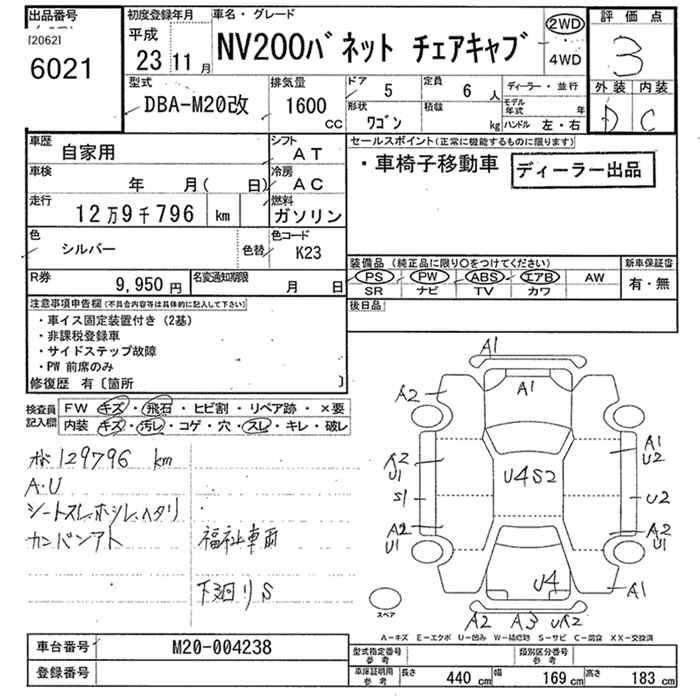 出品番号
[2062]
6021
初度登録年月
平成
23年 11月
車名・グレード
NV200バネット チェアキャブ
2WD
4WD
評価点
3
外装 内装
D C
型式
DBA-M20改
排気量
1600 CC
ドア 5
定員 6 人
形状 ワゴン
積載 kg
ディーラー・並行
モデル年式 年
ハンドル 左・右
車歴 自家用
シフト AT
車検 年 月( 日)
冷房 AC
走行 12万9千796 km
燃料 ガソリン
色 シルバー 色替
色コード K23
R券 9,950円
名変通知期限 月 日
セールスポイント(正常に機能するものに限ります)
・車椅子移動車
ディーラー出品
装備品(純正品に限り○をつけてください)
PS PW ABS エアB AW
SR ナビ TV カワ
新車保証書
有・無
後日品
注意事項申告欄(不具合内容等は具体的に記入して下さい)
・車イス固定装置付き(2基)
・非課税登録車
・サイドステップ故障
・PW 前席のみ
修復歴 有〔箇所 〕
検査員記入欄
FW キズ・飛石・ヒビ割・リペア跡・×要
内装 キズ・汚レ・コゲ・穴・スレ・キレ・破レ
129796 km
A・U
シートスレ、ホツレ、ヘタリ
カンバンアト
福祉車両
下廻りS
A1
A1
A2
A1
U2
A2
U1
U4S2
S1
U2
A2
U1
A2
U1
U4
A1
A2 A3 UA2
スペア
A-キズ E-エクボ U-凹み W-補修跡 S-サビ C-腐食 XX-交換済
車台番号 M20-004238
登録番号
型式指定番号 参考
類別区分番号 参考
車庫証明用 参考 長さ 440 cm 幅 169 cm 高さ 183 cm